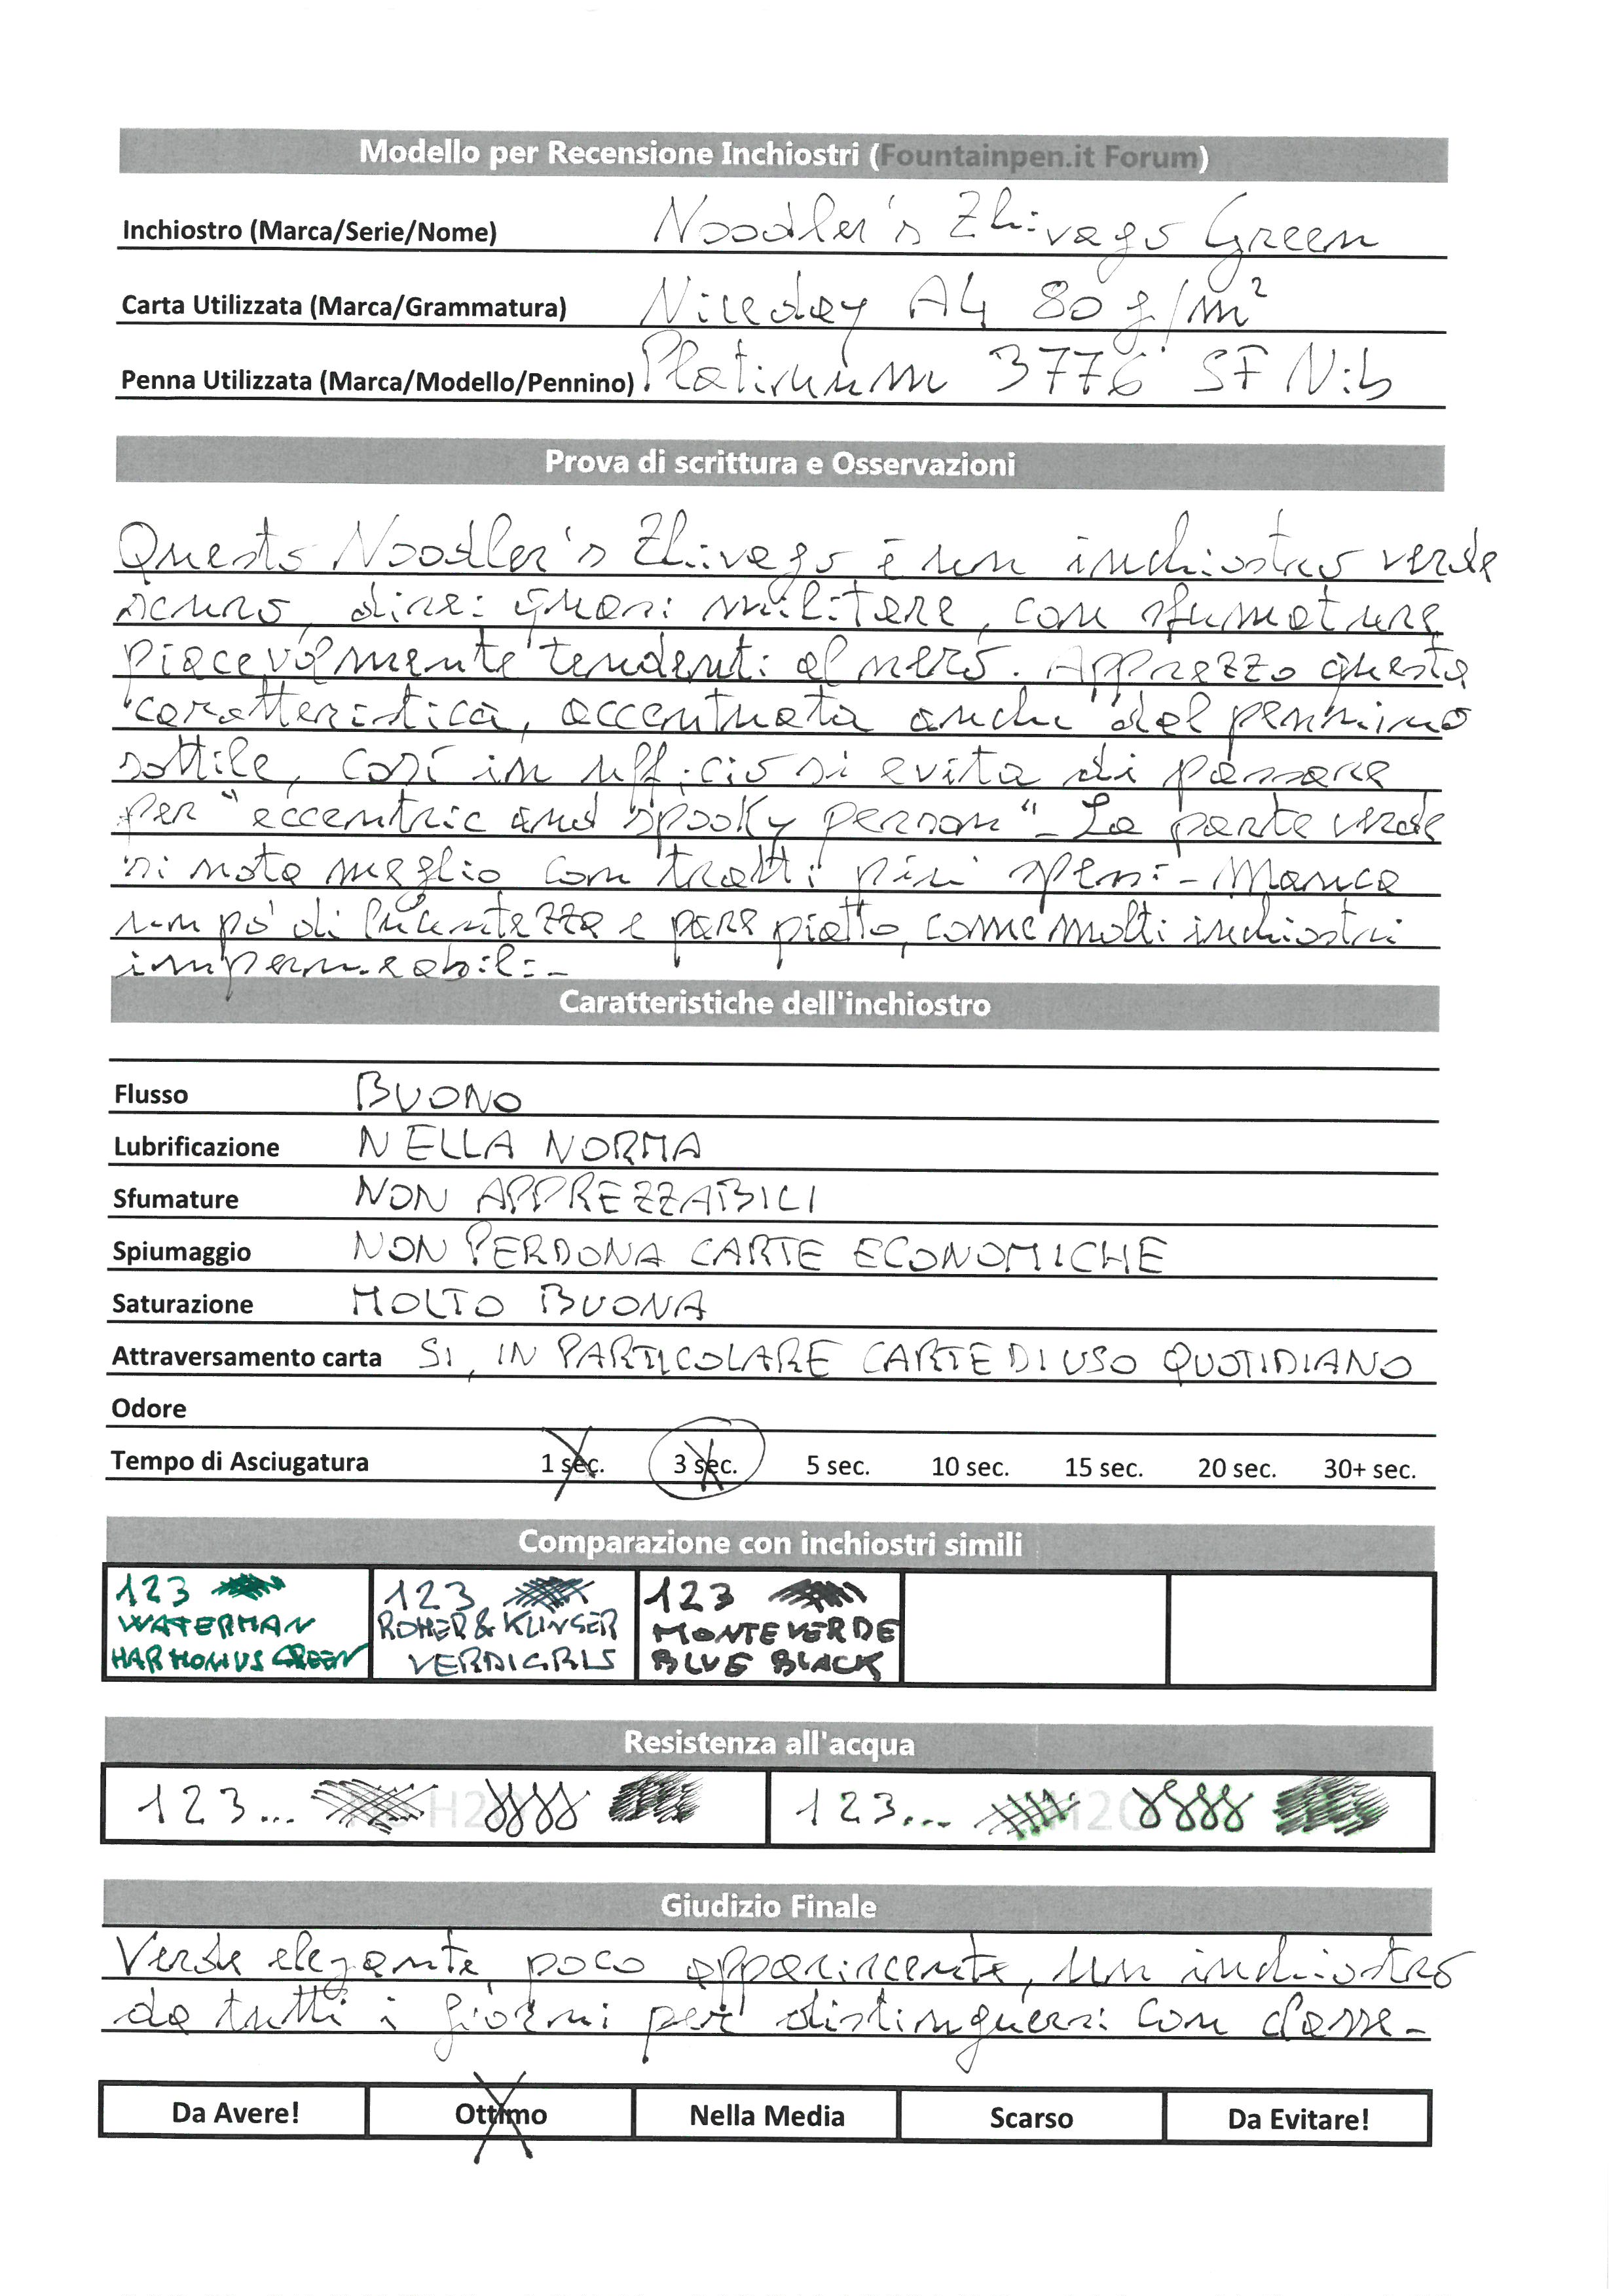 Modello per Recensione Inchiostri (Fountainpen.it Forum)
Inchiostro (Marca/Serie/Nome) Noodler's Zhivago Green
Carta Utilizzata (Marca/Grammatura) Niceday A4 80 g/m²
Penna Utilizzata (Marca/Modello/Pennino) Platinum 3776 SF Nib
Prova di scrittura e Osservazioni
Questo Noodler's Zhivago è un inchiostro verde
scuro, direi quasi militare, con sfumature
piacevolmente tendenti al nero. Apprezzo questa
caratteristica, accentuata anche dal pennino
sottile, così in ufficio si evita di passare
per "eccentric and spooky person"- La parte verde
si nota meglio con tratti più spessi - Manca
un pò di lucentezza e pare piatto, come molti inchiostri
impermeabili -
Caratteristiche dell'inchiostro
Flusso BUONO
Lubrificazione NELLA NORMA
Sfumature NON APPREZZABILI
Spiumaggio NON PERDONA CARTE ECONOMICHE
Saturazione MOLTO BUONA
Attraversamento carta SI, IN PARTICOLARE CARTE DI USO QUOTIDIANO
Odore
Tempo di Asciugatura 1 sec. 3 sec. 5 sec. 10 sec. 15 sec. 20 sec. 30+ sec.
Comparazione con inchiostri simili
123 123 123
WATERMAN ROHER & KLINGER MONTEVERDE
HARMONUS GREEN VERDIGRIS BLUE BLACK
Resistenza all'acqua
123... H2O 123... H2O
Giudizio Finale
Verde elegante, poco appariscente, un inchiostro
da tutti i giorni per distinguersi con classe -
Da Avere! Ottimo Nella Media Scarso Da Evitare!